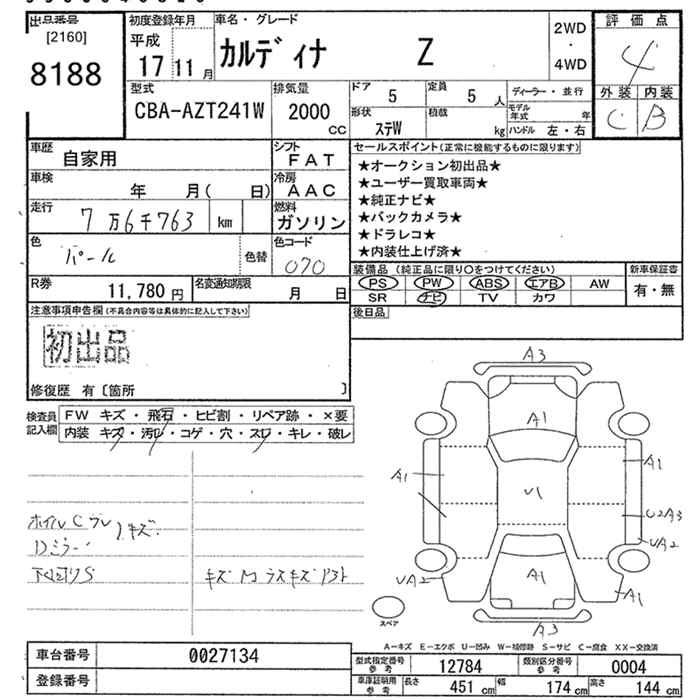 出品番号
[2160]
8188
初度登録年月
平成
17 11 月
車名・グレード
カルディナ Z
2WD
・
4WD
評価点
4
外装 内装
C B
型式
CBA-AZT241W
排気量
2000
CC
ドア 5
定員 5 人
形状 ステW
積載 kg
ディーラー・並行
モデル年式 年
ハンドル 左・右
車歴 自家用
シフト FAT
車検 年 月( 日)
冷房 AAC
走行 7万6千763 km
燃料 ガソリン
色 パール 色替
色コード 070
R券 11,780 円
名変通知期限 月 日
セールスポイント(正常に機能するものに限ります)
★オークション初出品★
★ユーザー買取車両★
★純正ナビ★
★バックカメラ★
★ドラレコ★
★内装仕上げ済★
装備品 (純正品に限り〇をつけてください)
PS PW ABS エアB AW
SR ナビ TV カワ
新車保証書
有・無
後日品
注意事項申告欄(不具合内容等は具体的に記入して下さい)
初出品
修復歴 有〔箇所 〕
検査員記入欄
FW キズ・飛石・ヒビ割・リペア跡・×要
内装 キズ・汚レ・コゲ・穴・スレ・キレ・破レ
ホイル
キズ
Dミラー
下回りS
A3
A1
A1
A1
U1
U2A3
UA2
UA2
A1
A1
A3
スペア
A-キズ E-エクボ U-凹み W-補修跡 S-サビ C-腐食 XX-交換済
車台番号 0027134
登録番号
型式指定番号参考 12784
類別区分番号参考 0004
車庫証明用参考 長さ 451 cm 幅 174 cm 高さ 144 cm